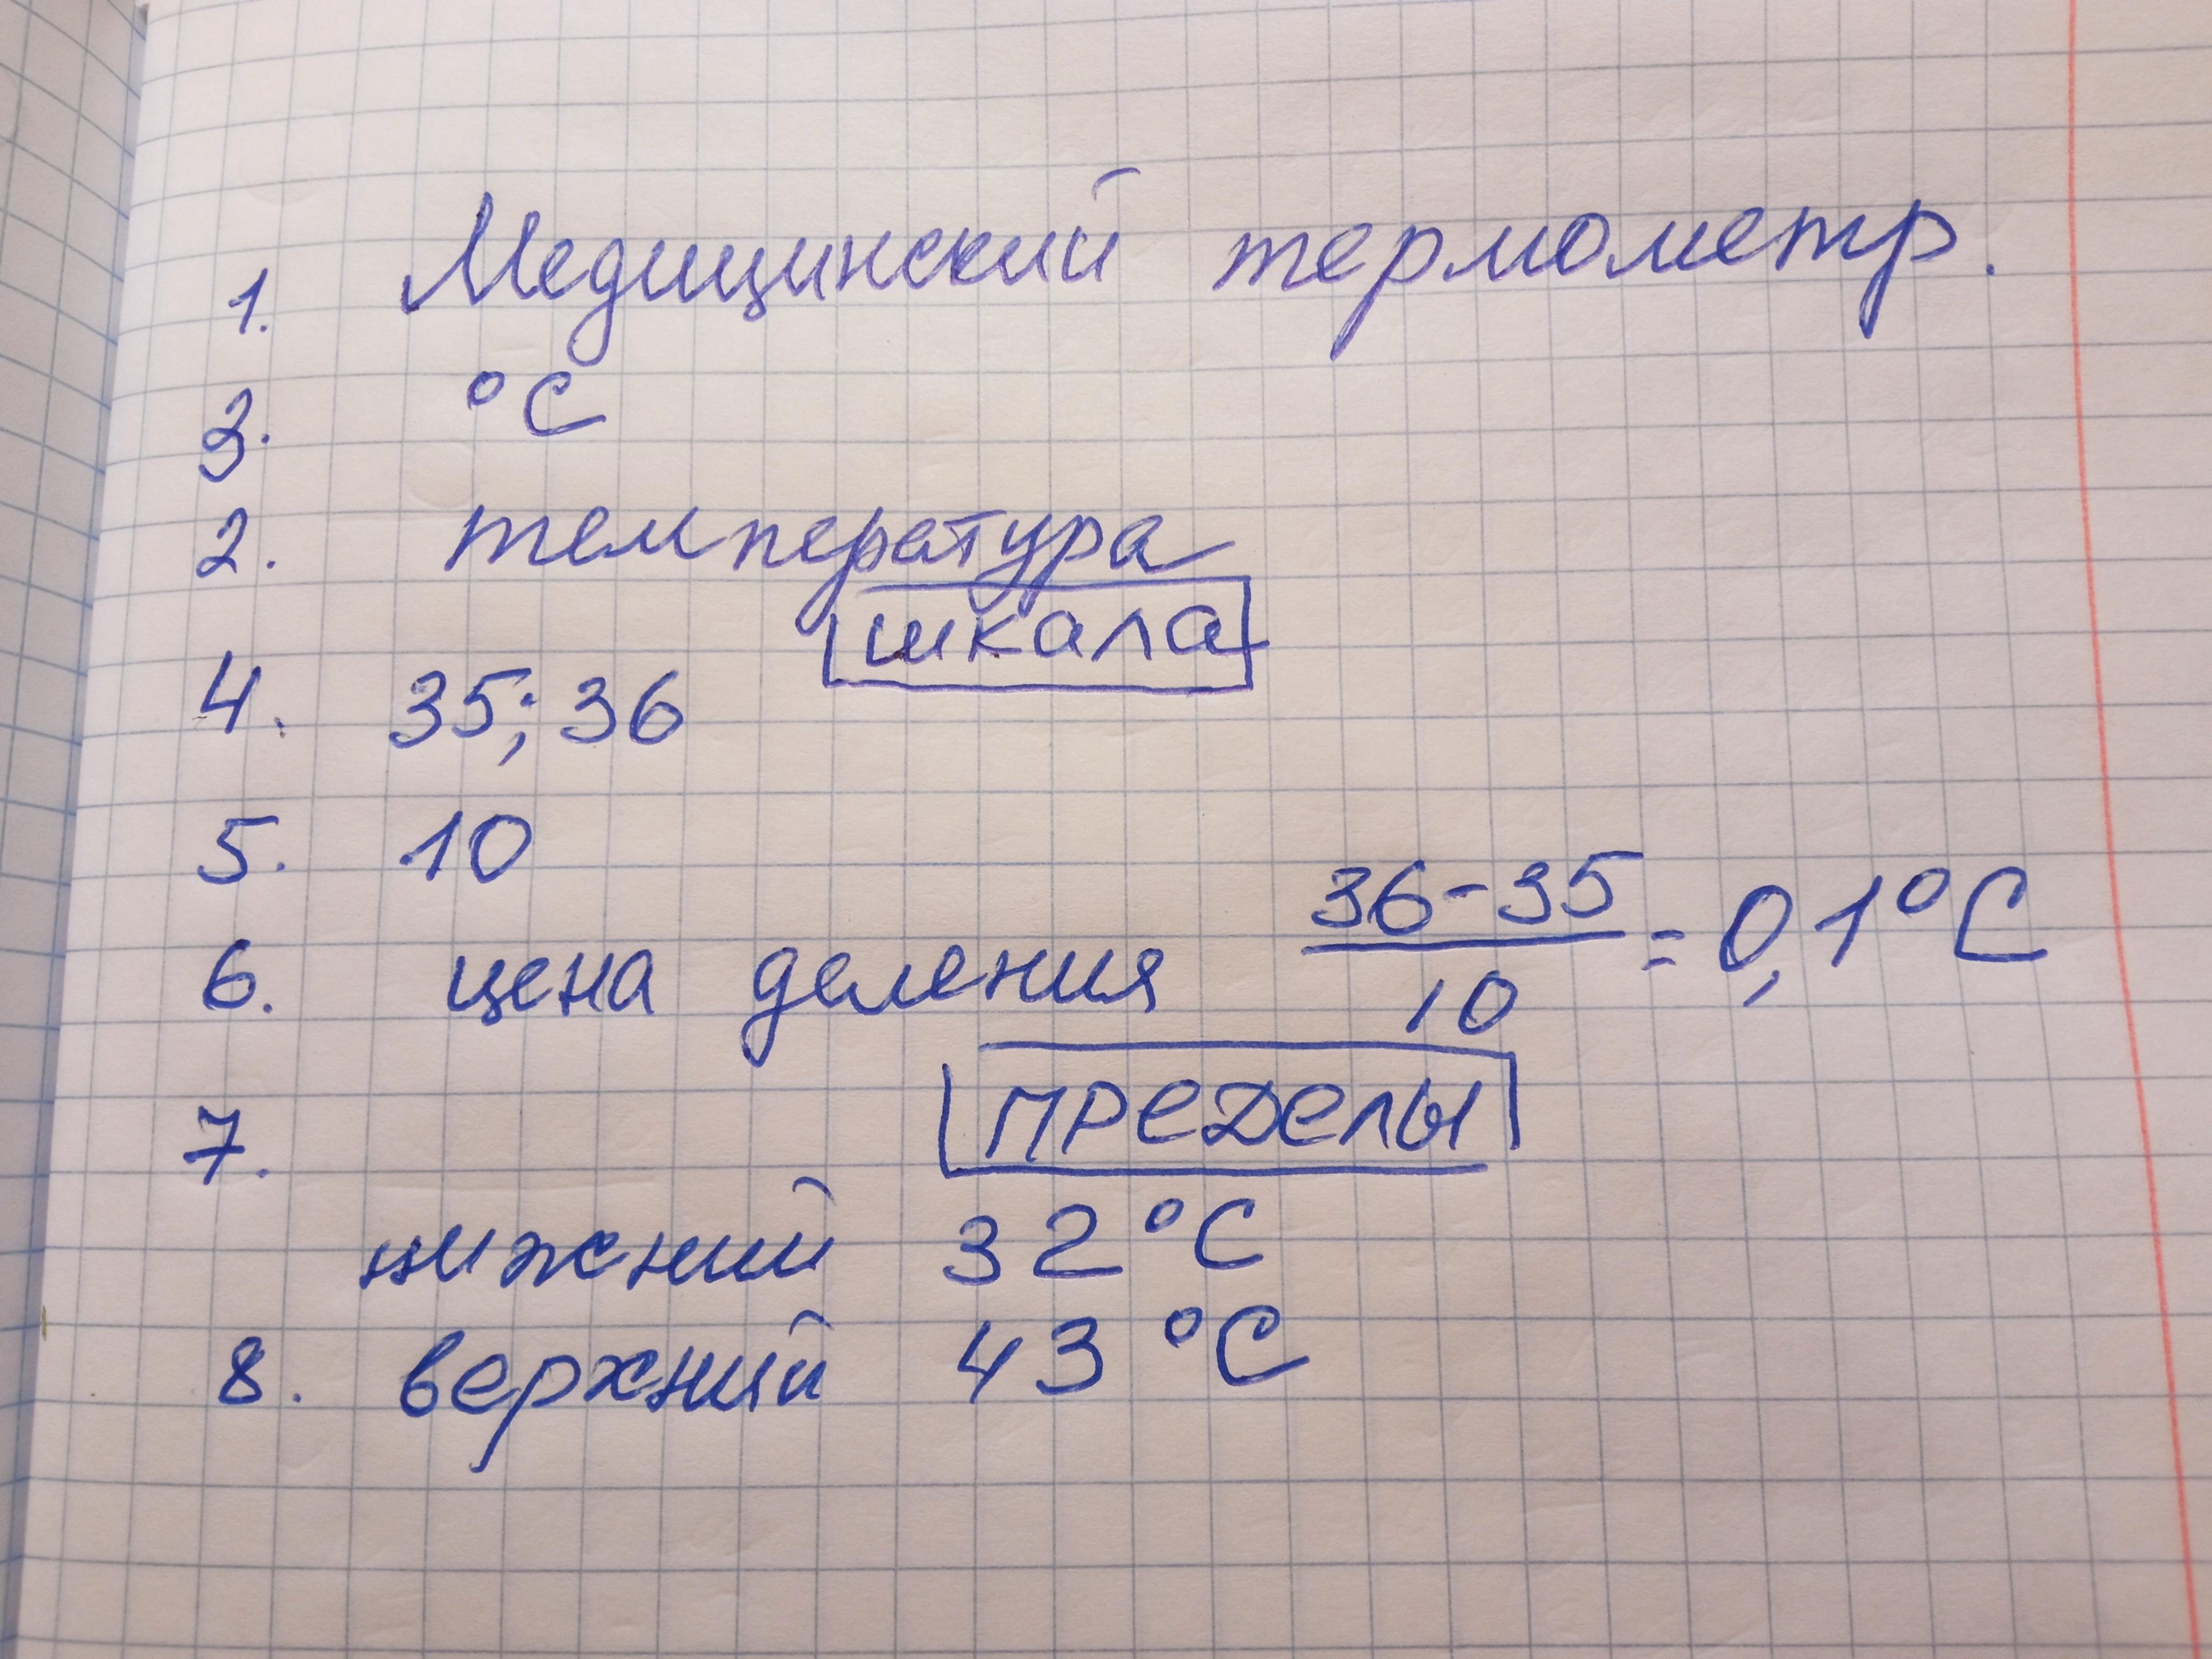 1. Медицинский термометр.
3. °C
2. температура
шкала
4. 35; 36
5. 10
6. цена деления 36-35/10 = 0,1°C
7. пределы
нижний 32°C
8. верхний 43°C